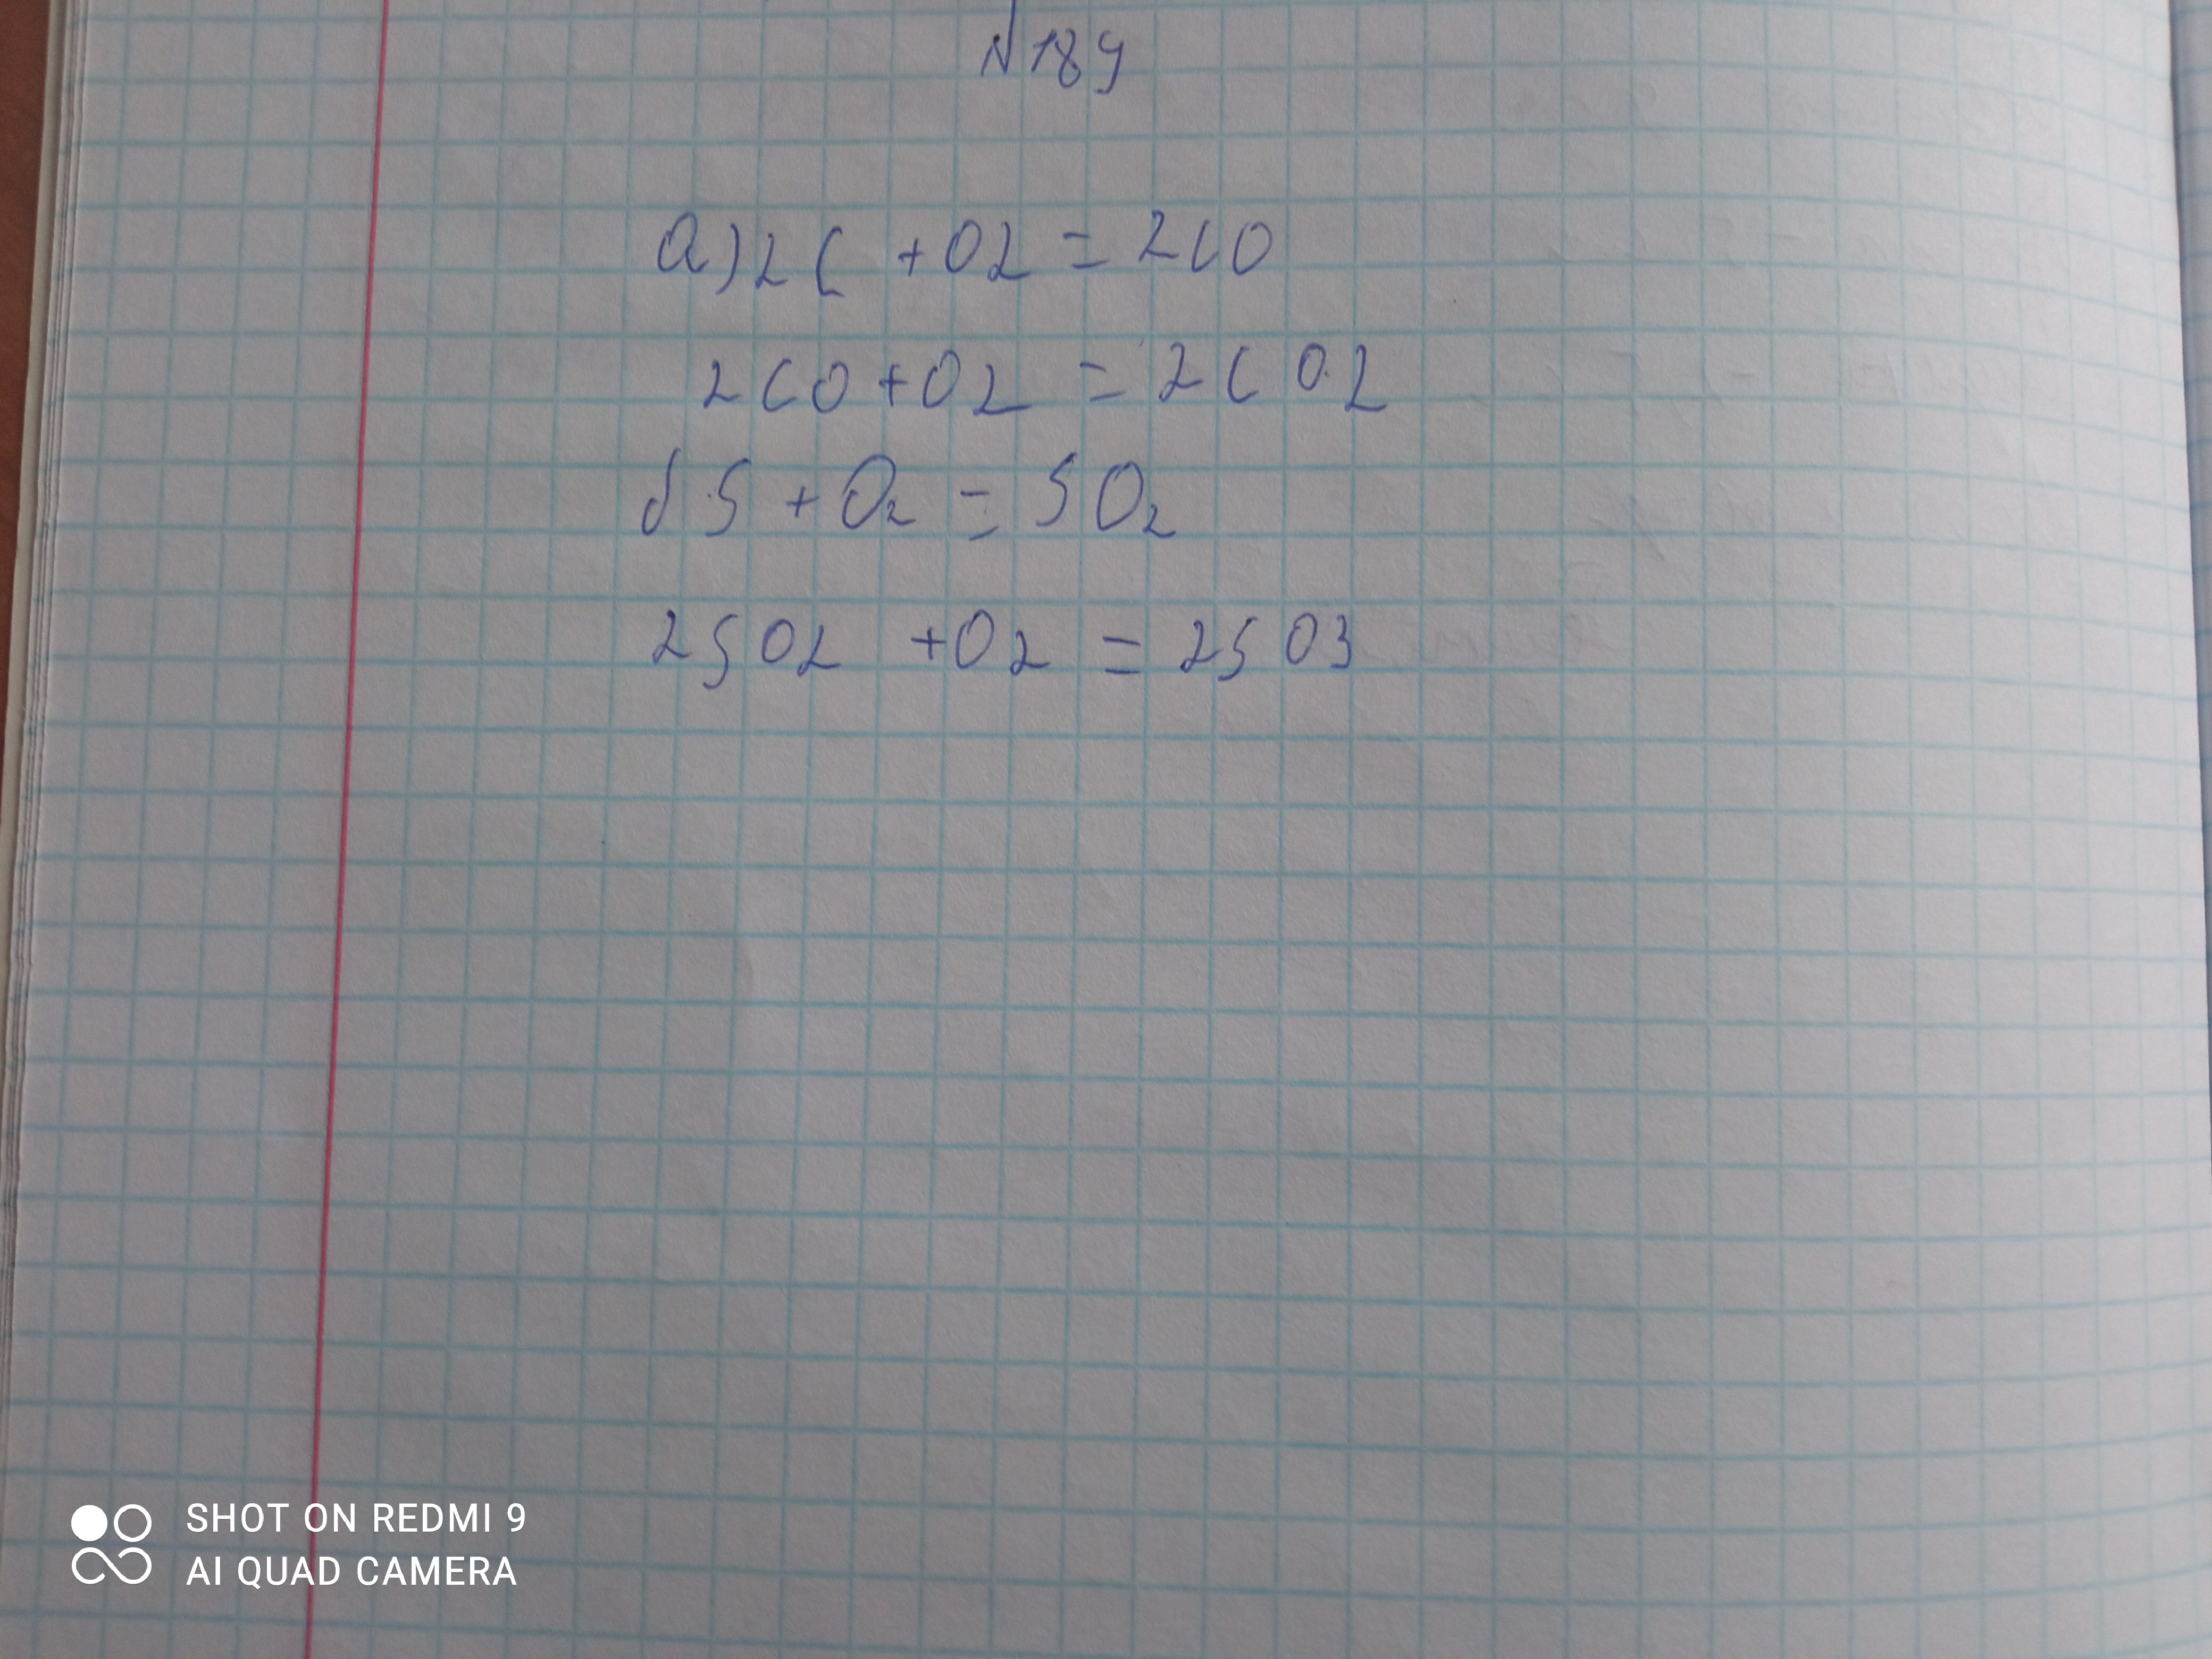 №189
а) 2C + O2 = 2CO
2CO + O2 = 2CO2
б S + O₂ = SO₂
2SO2 + O2 = 2SO3
SHOT ON REDMI 9
AI QUAD CAMERA